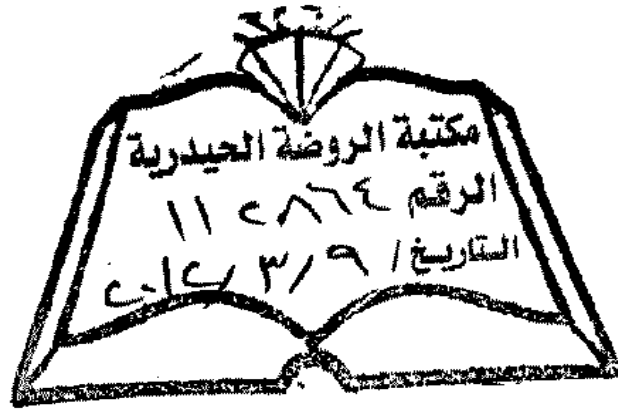 مكتبة الروضة الحيدرية
الرقم ١١٢٨٦٤
التاريخ / ٩ / ٣ / ٢٠١٢